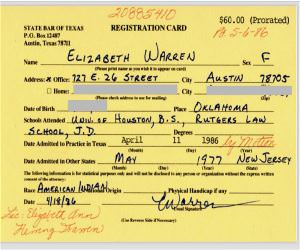 20885410
STATE BAR OF TEXAS
P.O. Box 12487
Austin, Texas 78711
REGISTRATION CARD
$60.00 (Prorated)
Pd. 5-6-86
Name ELIZABETH WARREN Sex F
(Please print name as you wish it to appear on card)
Address: Office: 727 E. 26 STREET City AUSTIN 78705
Home: City
(Please check address to use for mailing)
Date of Birth Place OKLAHOMA
Schools Attended UNIV. OF HOUSTON, B.S., RUTGERS LAW
SCHOOL, J.D.
Date Admitted to Practice in Texas April 11 1986 by Motion
(Month) (Day) (Year)
Date Admitted in Other States MAY 1977 NEW JERSEY
(Month) (Day) (Year) (State)
The following information is for statistical purposes only and will not be disclosed to any person or organization without the express written
consent of the attorney:
Race AMERICAN INDIAN Origin Physical Handicap if any
Date 4/18/86 EWarren
Lic: Elizabeth Ann
Herring Warren
(Use Reverse Side if Necessary)